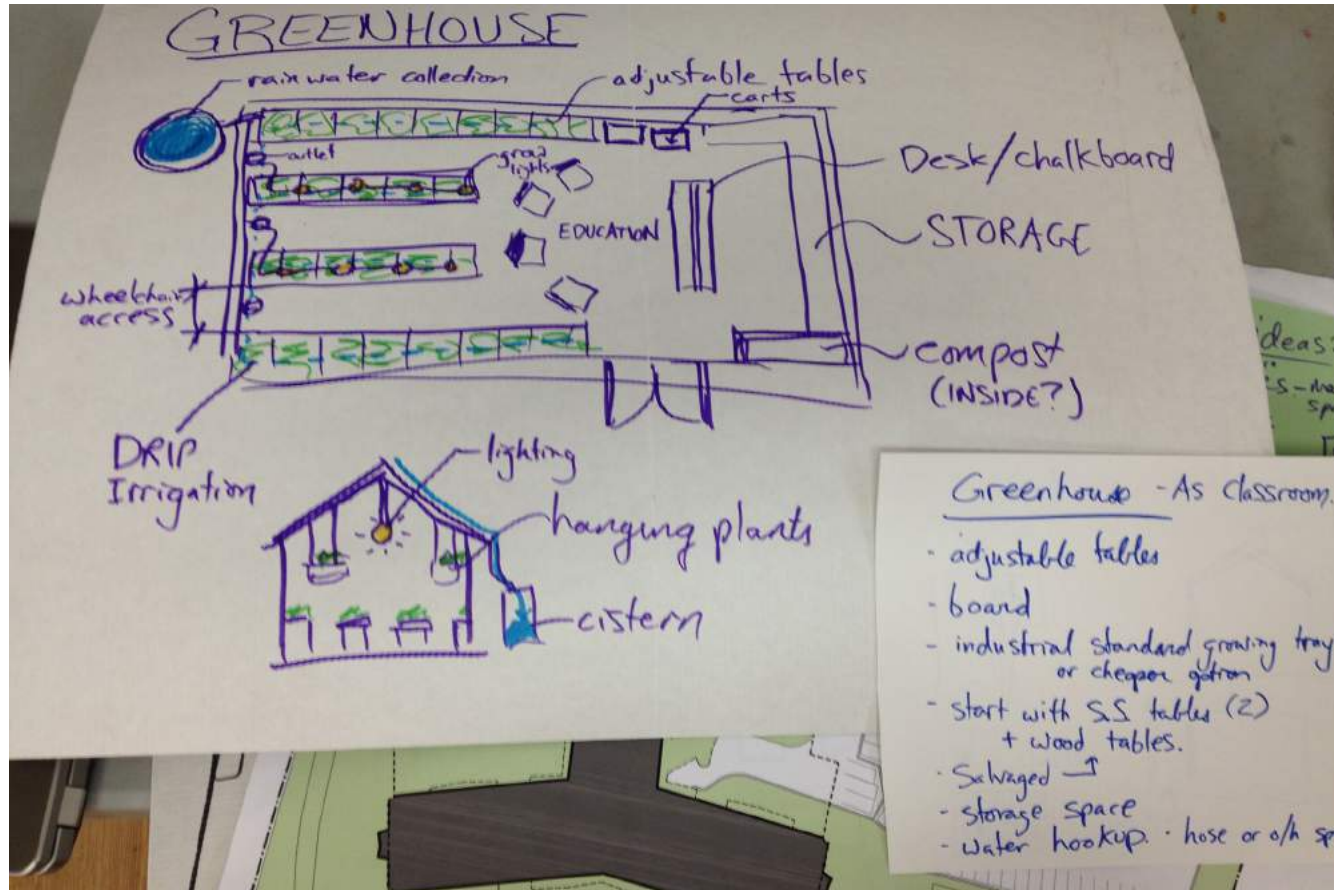 GREENHOUSE
rain water collection
adjustable tables
carts
outlet
grow
lights
Desk/chalkboard
EDUCATION
STORAGE
wheelchair
access
compost
(INSIDE?)
DRIP
Irrigation
lighting
hanging plants
cistern
deas:
Greenhouse - As Classroom
- adjustable tables
- board
- industrial standard growing tray
or cheaper option
- start with SS tables (2)
+ wood tables.
- Salvaged
- storage space
- water hookup. - hose or o/h sp